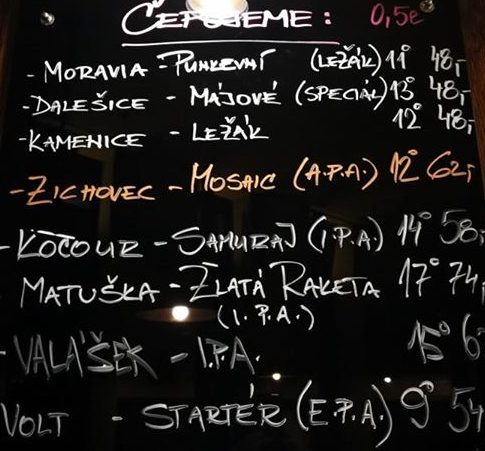 ČEPUJEME: 0,5l
- MORAVIA - PUNKEVNÍ (LEŽÁK) 11° 48,-
- DALEŠICE - MÁJOVÉ (SPECIÁL) 13° 48,-
- KAMENICE - LEŽÁK 12° 48,-
- ZICHOVEC - MOSAIC (A.P.A.) 12° 62,-
- KOCOUR - SAMURAJ (I.P.A.) 14° 58,-
MATUŠKA - ZLATÁ RAKETA 17° 74,
(I.P.A.)
- VALÁŠEK - I.P.A. 15° 6
VOLT - STARTÉR (E.P.A.) 9° 54